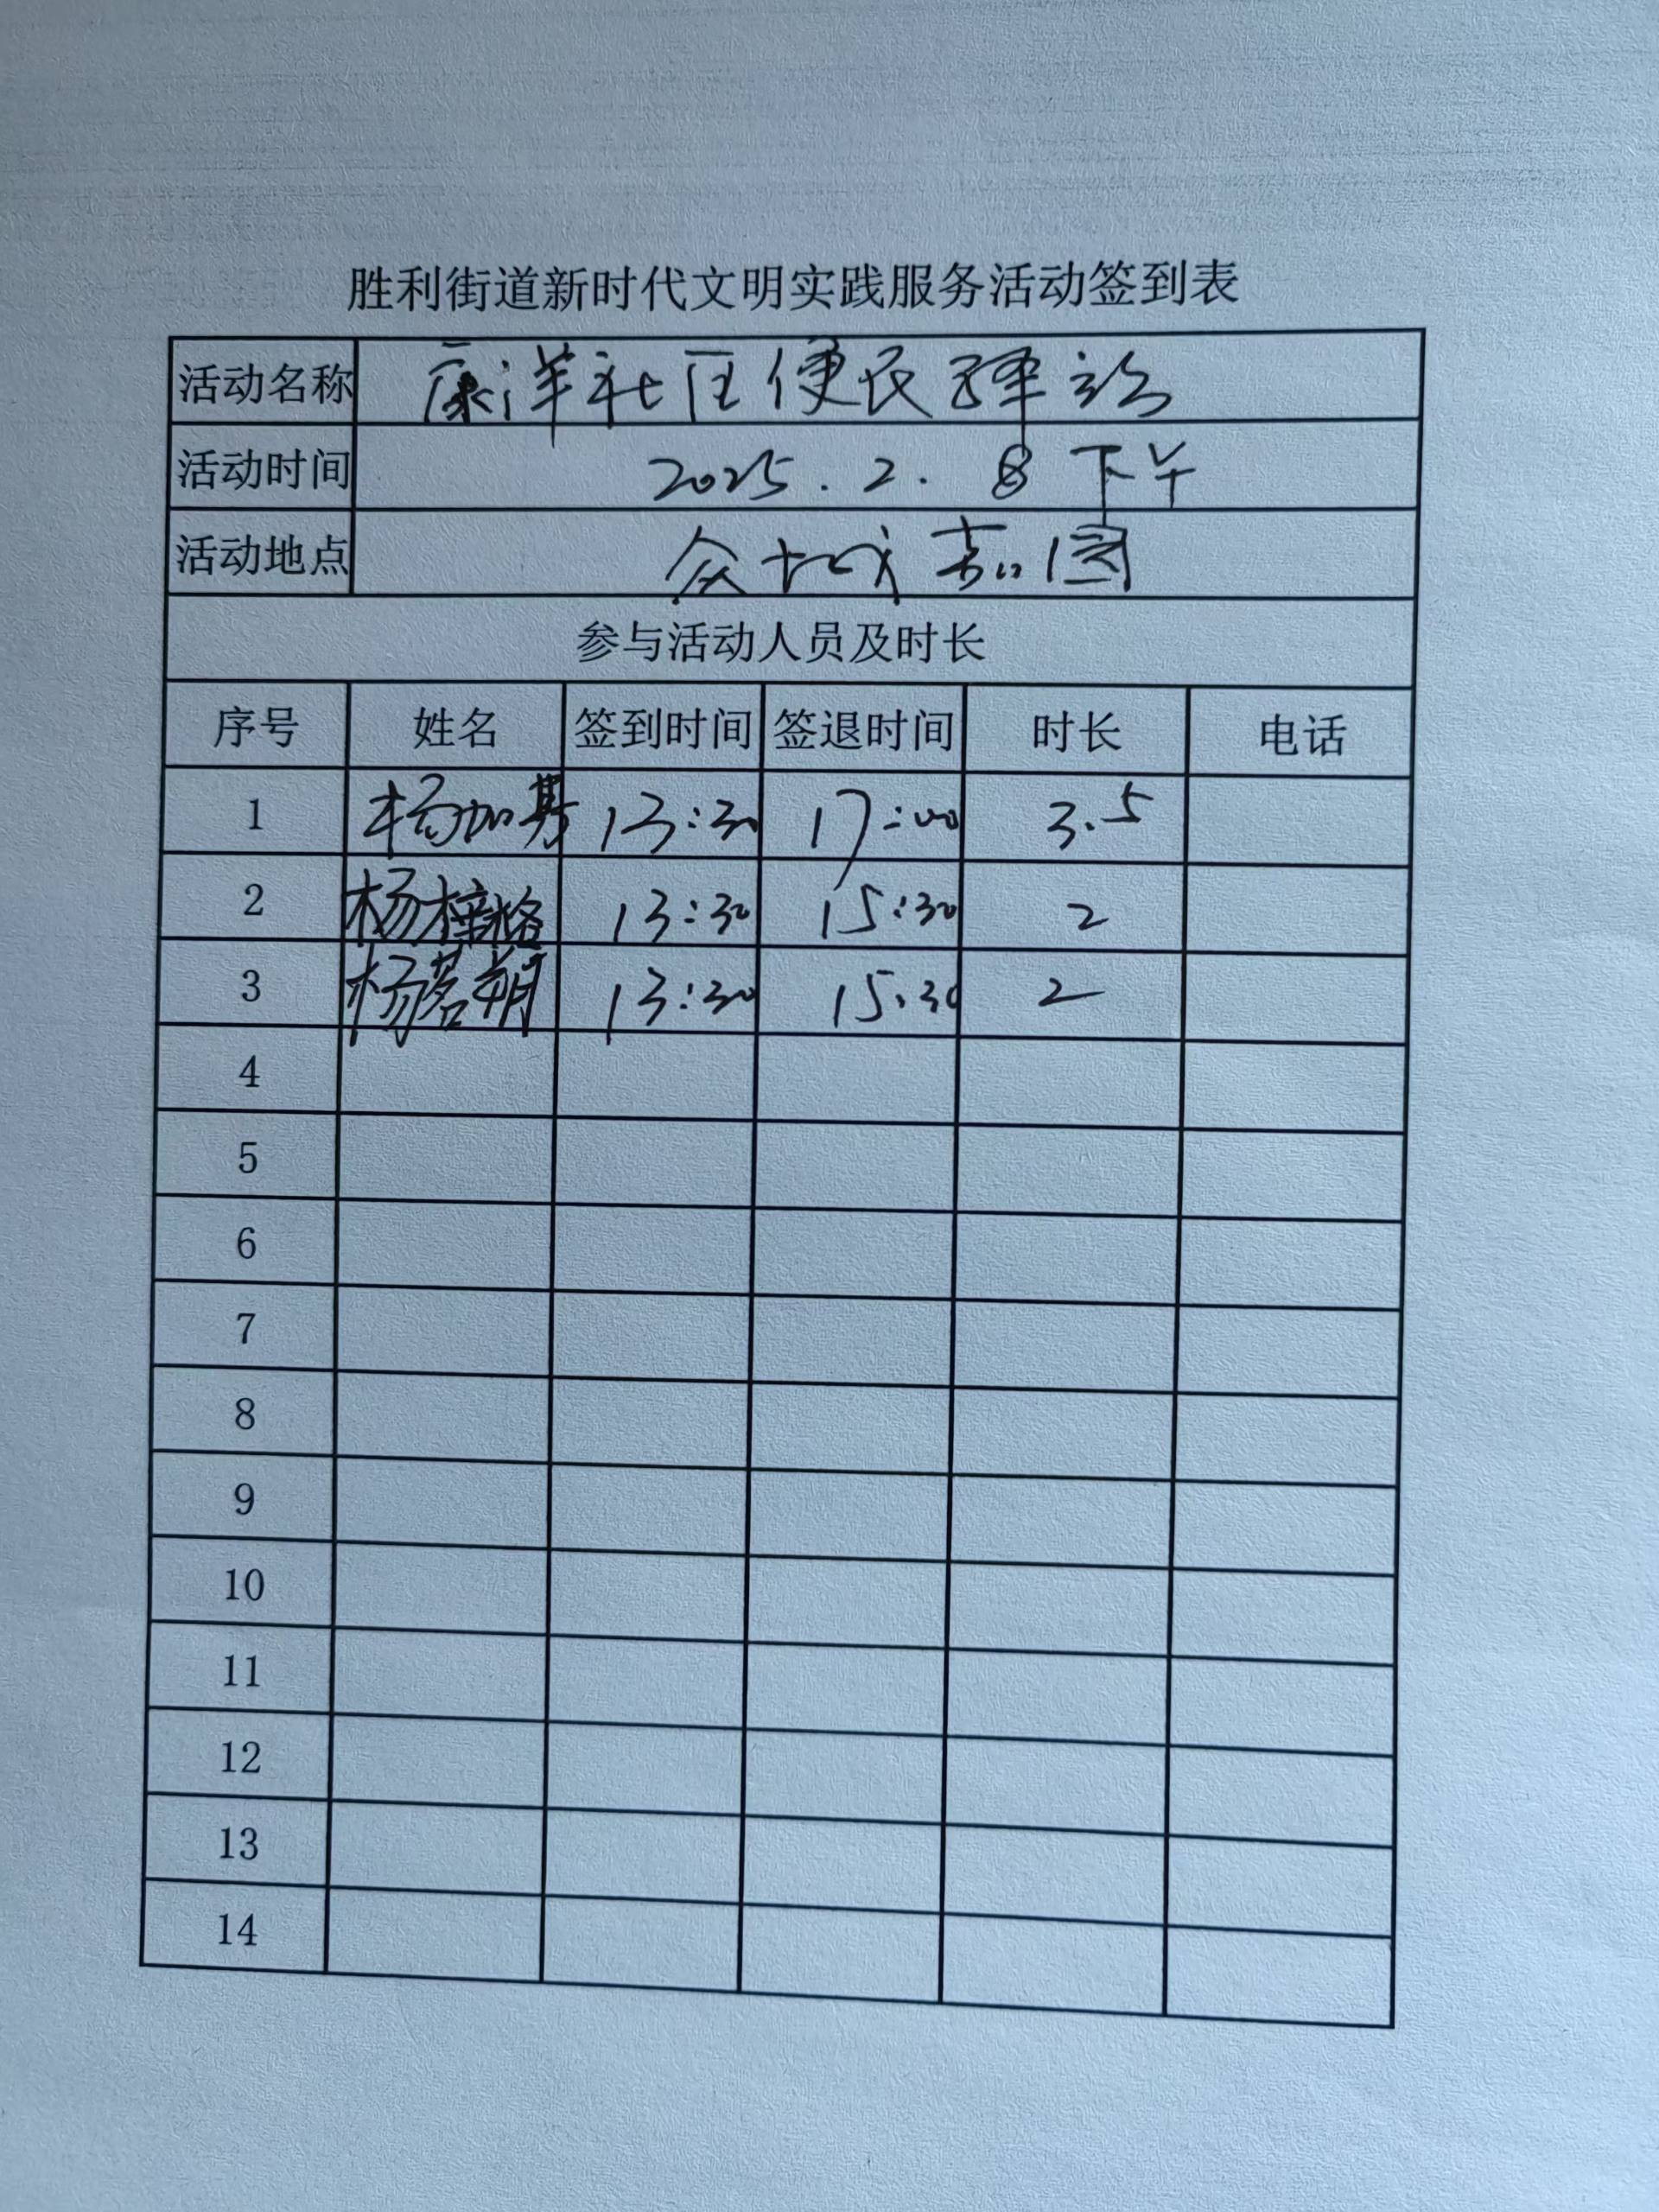 胜利街道新时代文明实践服务活动签到表
活动名称 康洋社区便民驿站
活动时间 2025.2.8下午
活动地点 众城嘉园
参与活动人员及时长
序号 姓名 签到时间 签退时间 时长 电话
1 杨加 13:30 17:00 3.5
2 杨梓格 13:30 15:30 2
3 杨茗朔 13:30 15:30 2
4
5
6
7
8
9
10
11
12
13
14